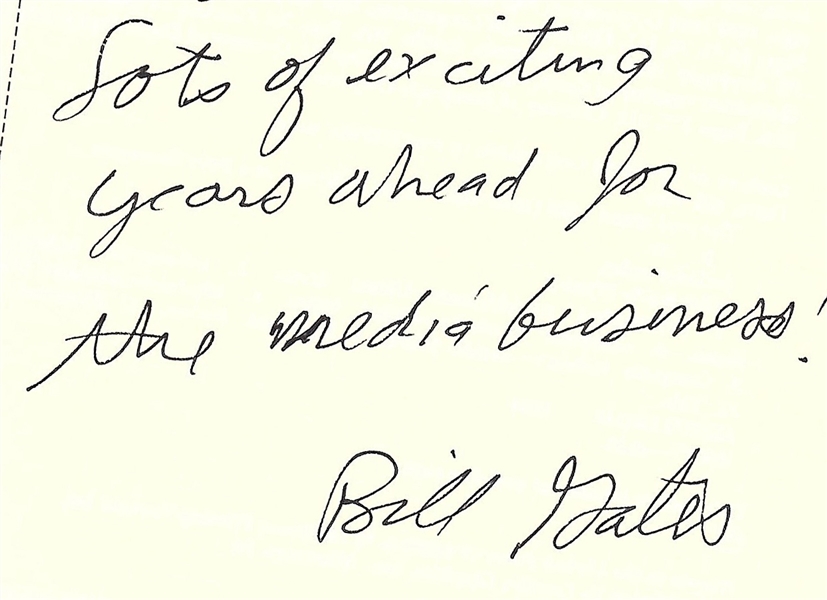 Lots of exciting
years ahead for
the media business!
Bill Gates